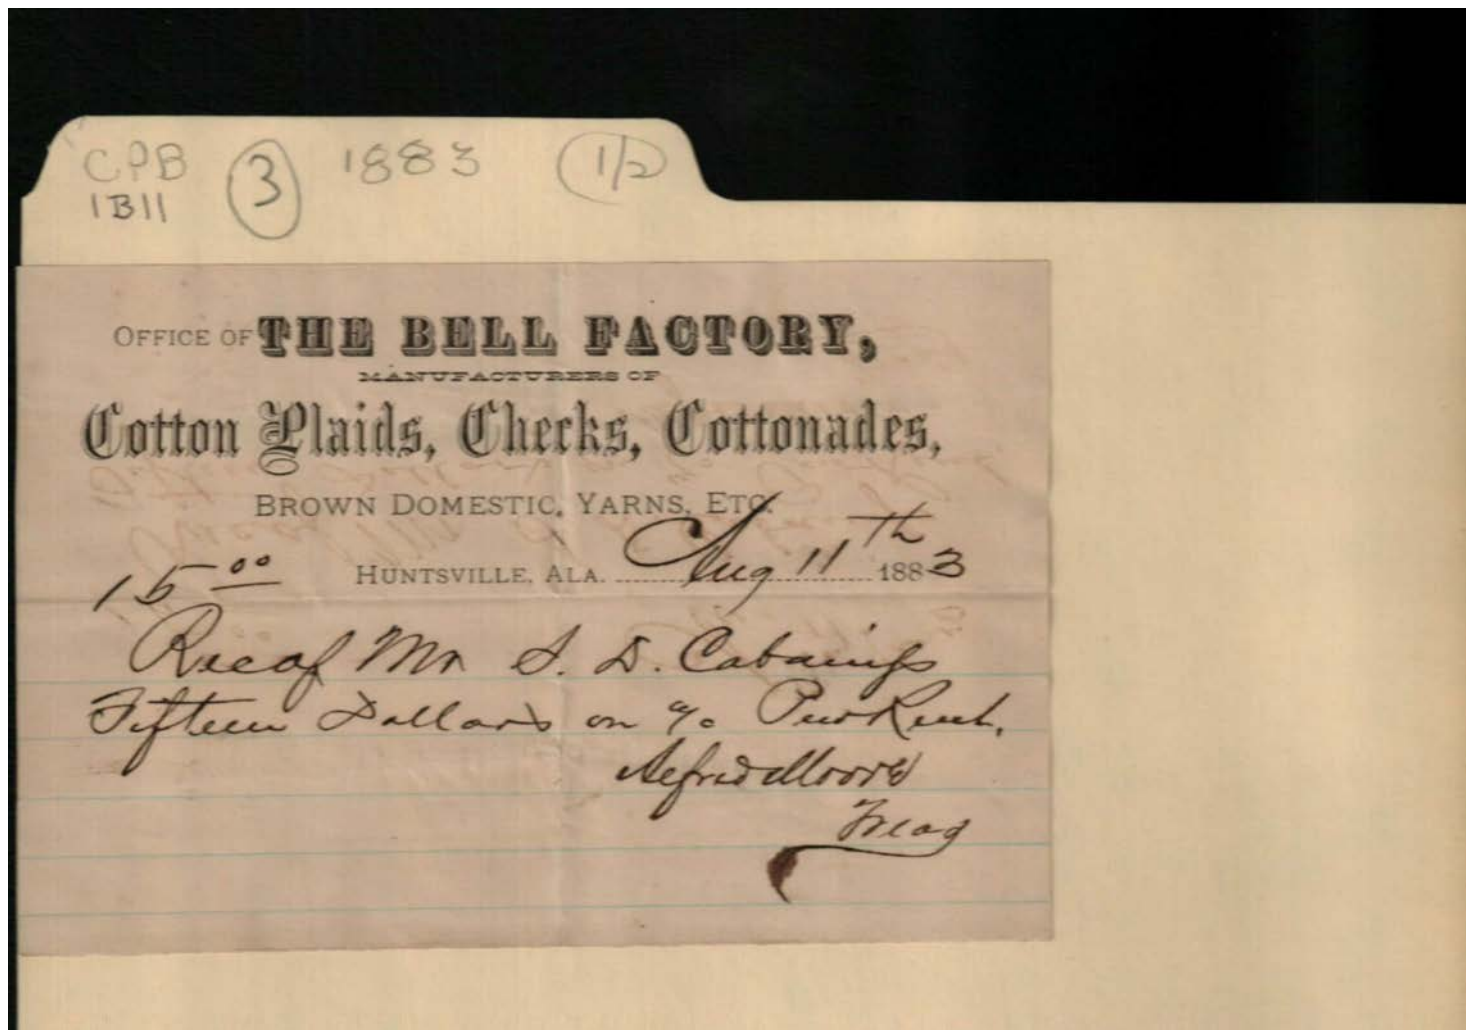 CPB 3 1883 1/2
1B11
OFFICE OF THE BELL FACTORY,
MANUFACTURERS OF
Cotton Plaids, Checks, Cottonades,
BROWN DOMESTIC, YARNS, ETC.
HUNTSVILLE, ALA. Aug 11th 1883
15.00
Recd of Mr S. D. Cabaniss
Fifteen Dollars on a/c Pew Rent.
Alfred Moore
Treas